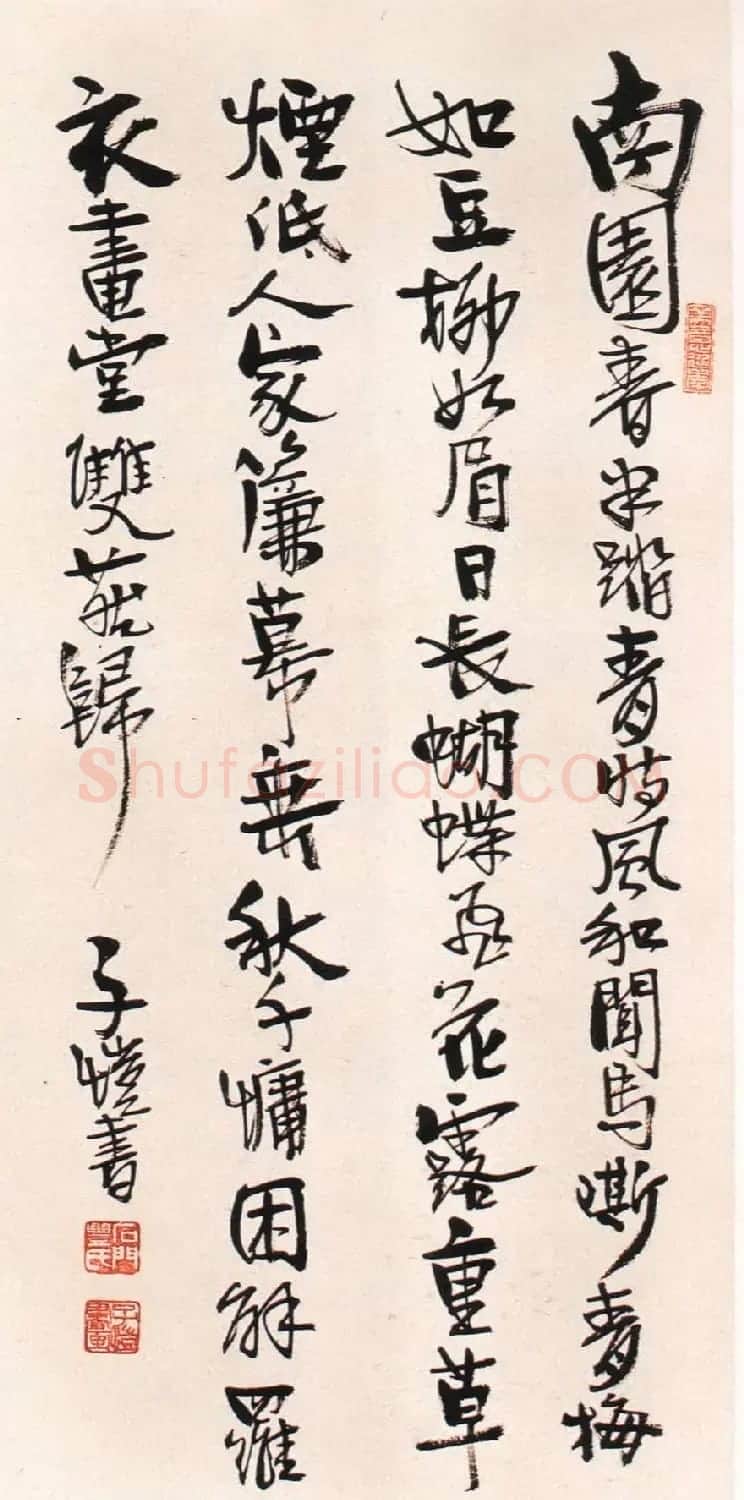 南園春半踏青時風和聞馬嘶青梅
如豆柳如眉日長蝴蝶飛花露重草
煙低人家簾幕垂秋千慵困解羅
衣畫堂雙燕歸
子愷書
石門豐氏
子愷書畫
Shufaziliao.COM